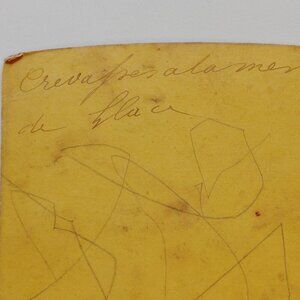 Crevasses a la mer
de Glace